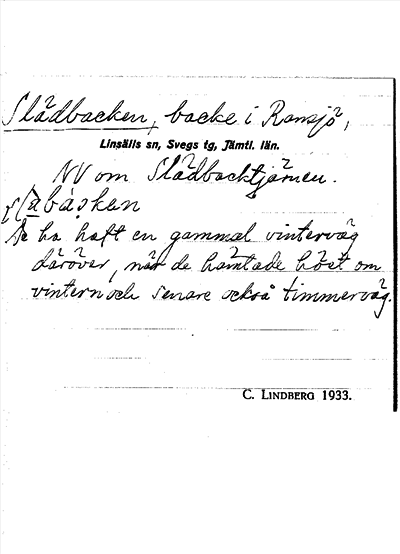 Slädbacken, backe i Ransjö,
Linsälls sn, Svegs tg, Jämtl. län.
NV om Slädbacktjärnen.
De ha haft en gammal vinterväg
däröver, när de hämtade höst om
vintern och senare också timmerväg.
C. LINDBERG 1933.